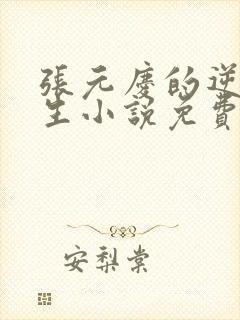 張元慶的逆
生小說免費
安梨棠